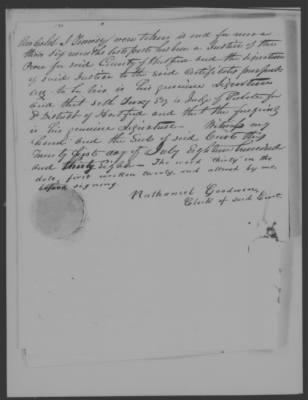 were taken is and for more
than Six months last past has been a Justice of the
Peace for said County of Hartford and the signature
of said Justice to the said Certificates purporting
to be his is his genuine Signature
and that Seth Terry Esq is Judge of Probate for
District of Hartford and that the foregoing
is his genuine Signature. Witness my
hand and the Seal of said Court this
Twenty first day of July Eighteen hundred
and Thirty Eight — The word thirty in the
date, first written and altered by me,
before signing.
Nathaniel Goodwin,
Clerk of said Court.